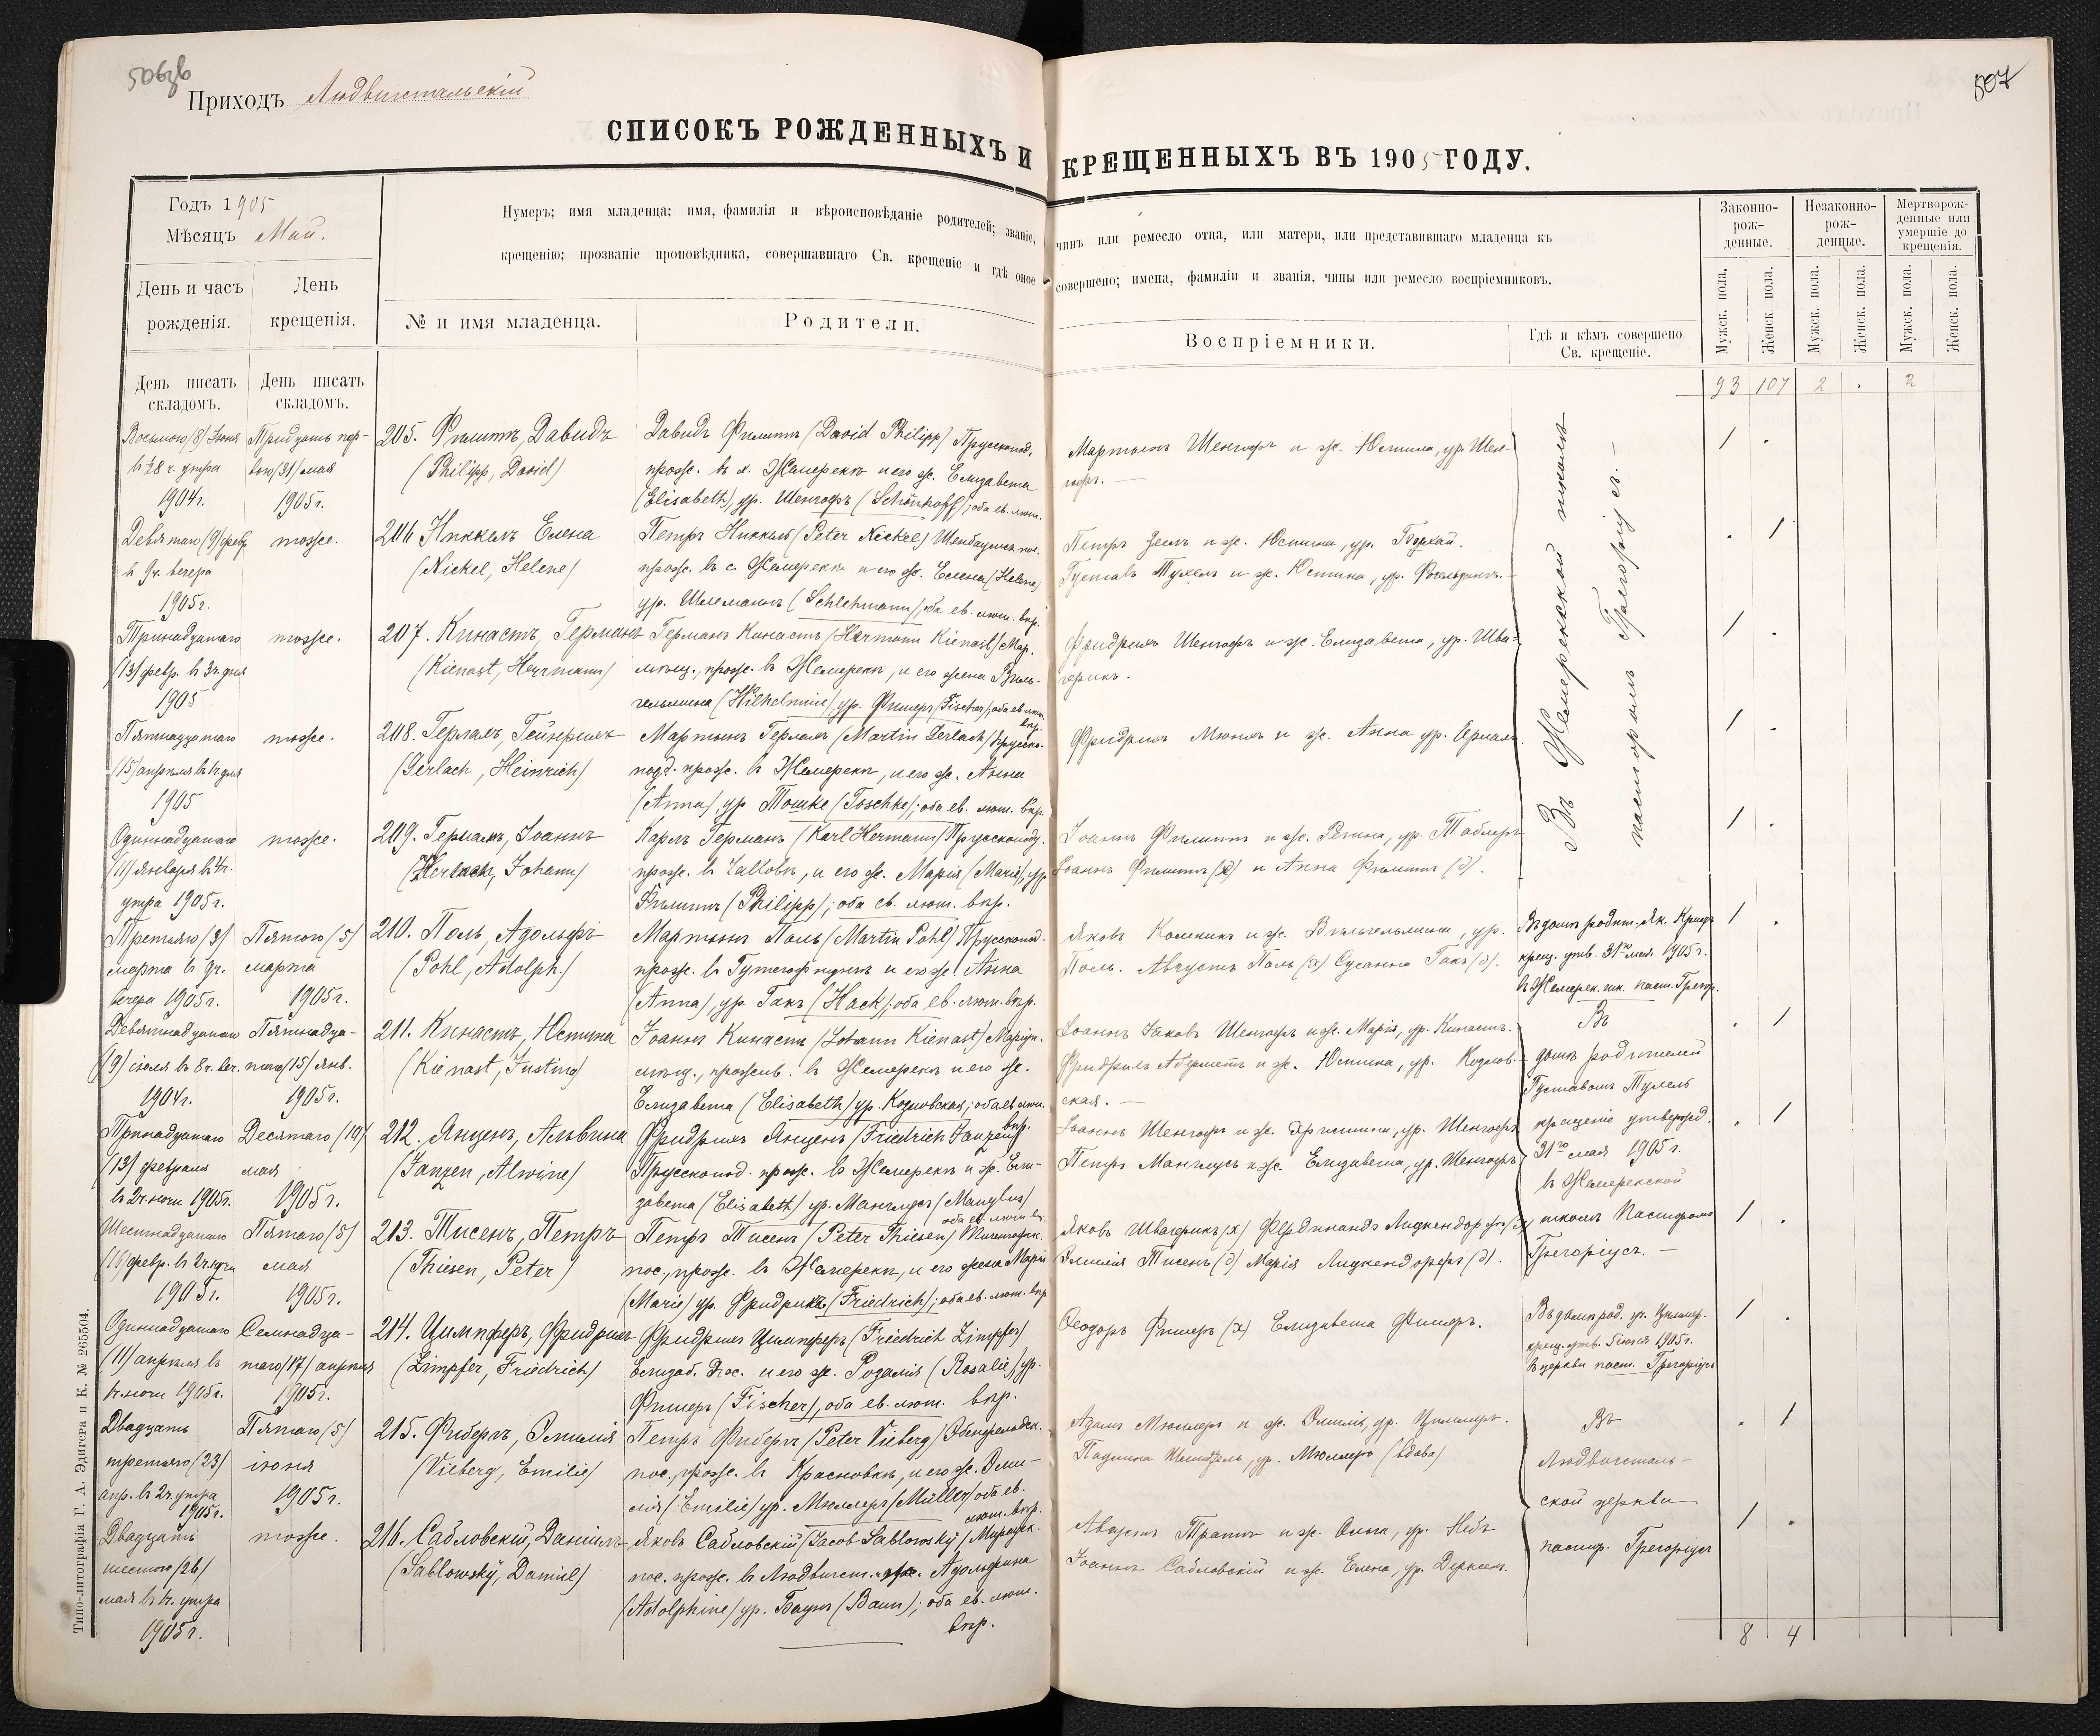 506
507
Приходъ Людвигстальскій
СПИСОКЪ РОЖДЕННЫХЪ И КРЕЩЕННЫХЪ ВЪ 1905 ГОДУ.
Годъ 1905
Мѣсяцъ Май.
День и часъ рожденія.
День крещенія.
Нумеръ; имя младенца; имя, фамилія и вѣроисповѣданіе родителей; званіе, чинъ или ремесло отца, или матери, или представившаго младенца къ
крещенію; прозваніе проповѣдника, совершавшаго Св. крещеніе и гдѣ оное совершено; имена, фамиліи и званія, чины или ремесло воспріемниковъ.
№ и имя младенца.
Родители.
Воспріемники.
Гдѣ и кѣмъ совершено
Св. крещеніе.
Законно-
рож-
денные.
Незаконно-
рож-
денные.
Мертворож-
денные или
умершіе до
крещенія.
Мужск. пола.
Женск. пола.
Мужск. пола.
Женск. пола.
Мужск. пола.
Женск. пола.
День писать
складомъ.
День писать
складомъ.
93 107 2 . 2
Восьмого /8/ Іюня
в ½8 ч. утра
1904 г.
Тридцать пер-
вого /31/ мая
1905 г.
205. Филиппъ, Давидъ
(Philipp, David)
Давидъ Филиппъ (David Philipp) Прусскопод.
прож. въ х. Жемерекъ и его ж. Елизавета
(Elisabeth) ур. Шенгофъ (Schönhoff); оба ев. лют.
Мартынъ Шенгофъ и ж. Юстина, ур. Шен-
гофъ. —
1 .
Девятаго (9) февр.
в 9 ч. вечера
1905 г.
тоже.
206 Никкель Елена
(Nickel, Helene)
Петръ Никкель (Peter Nickel)
прож. въ с. Жемерекъ и его ж. Елена (Helene)
ур. Шлеманъ (Schlehmann), оба ев. лют. вѣр.
Петръ и ж. Юстина, ур.
Густавъ Тухель и ж. Юстина, ур.
. 1
Тринадцатаго
(13) февр. в 3 ч. дня
1905
тоже.
207. Кинастъ, Германъ
(Kienast, Herrmann)
Германъ Кинастъ (Hermann Kienast) Мар.
мѣщ., прож. въ Жемерекъ, и его жена Виль-
гельмина (Wilhelmine) ур. Фишеръ (Fischer); оба ев. лют. вѣр.
Фридрихъ Шенгофъ и ж. Елизавета, ур. Шва-
герикъ.
1 .
Пятнадцатаго
(15) апрѣля в 1 ч дня
1905
тоже.
208. Герлахъ, Гейнрихъ
(Gerlach, Heinrich)
Мартынъ Герлахъ (Martin Gerlach) Прусско-
под. прож. в Жемерекъ, и его ж. Анна
(Anna), ур. Тошке (Toschke); оба ев. лют. вѣр.
Фридрихъ и ж. Анна ур.
1 .
Одиннадцатаго
(11) января в 4 ч.
утра 1905 г.
тоже.
209. Германъ, Іоаннъ
Johann)
Карлъ Германъ (Karl Hermann) Прусскопод.
прож. в и его ж. Марія (Marie), ур.
Филиппъ (Philipp); оба ев. лют. вѣр.
Іоаннъ Филиппъ и ж. Регина, ур.
Іоаннъ Филиппъ (х) и Анна Филиппъ (д).
1 .
Въ Жемерекской школѣ
пасторомъ Грегоріусъ. —
Третьяго (3)
марта в 9 ч.
вечера 1905 г.
Пятого (5)
марта
1905 г.
210. Поль, Адольфъ
(Pohl, Adolph.)
Мартынъ Поль (Martin Pohl) Прусскопод.
прож. в и его ж. Анна
(Anna), ур. Гакъ (Hack); оба ев. лют. вѣр.
Яковъ и ж. Вильгельмина, ур.
Поль. Августъ Поль (х) Сусанна Гакъ (д).
Въ домѣ родит. Як.
крещ. утв. 31го мая 1905 г.
в Жемерек. шк. паст. Грегор.
1 .
Девятнадцатаго
(19) іюля в 8 ч. веч.
1904 г.
Пятнадца-
таго (15) янв.
1905 г.
211. Кинастъ, Юстина
(Kienast, Justine)
Іоаннъ Кинастъ (Johann Kienast) Маріуп.
мѣщ., прожив. в Жемерекъ и его ж.
Елизавета (Elisabeth) ур. Козловская; оба ев. лют. вѣр.
Іоаннъ Іаковъ Шенгофъ и ж. Марія, ур. Кинастъ.
Фридрихъ и ж. Юстина, ур. Козлов-
ская. —
. 1
Въ
домѣ родителей
Густавомъ Тухель
крещеніе утвержд.
31го мая 1905 г.
в Жемерекской
школѣ Пасторомъ
Грегоріусъ. —
Тринадцатаго
(13) февраля
в 2 ч. ночи 1905 г.
Десятаго (10)
мая
1905 г.
212. Янценъ, Альвина
(Janzen, Alwine)
Фридрихъ Янценъ (Friedrich Janzen)
Прусскопод. прож. в Жемерекъ и ж. Ели-
завета (Elisabeth) ур. Манглусъ (Manglus)
оба ев. лют. вѣ.
Іоаннъ Шенгофъ и ж. ур. Шенгофъ
Петръ Манглусъ и ж. Елизавета, ур. Шенгофъ
. 1
Шестнадцатаго
(16) февр. в 2 ч. ночи
1905 г.
Пятаго (5)
мая
1905 г.
213. Тисенъ, Петръ
(Thiesen, Peter)
Петръ Тисенъ (Peter Thiesen)
пос., прож. в Жемерекъ, и его жена Марія
(Marie) ур. Фридрихъ (Friedrich); оба ев. лют. вѣр
Яковъ Швагерикъ (х) Фердинандъ Лицкендорфъ (х)
Эмилія Тисенъ (д) Марія Лицкендорфъ (д).
1 .
Одиннадцатаго
(11) апрѣля в
1 ч. ночи 1905 г.
Семнадца-
таго (17) апрѣля
1905 г.
214. Цимпферъ, Фридрихъ
(Zimpfer, Friedrich)
Фридрихъ Цимпферъ (Friedrich Zimpfer)
Елизав. пос. и его ж. Розалія (Rosalie) ур.
Фишеръ (Fischer), оба ев. лют. вѣр.
Ѳеодоръ Фишеръ (х) Елизавета Фишеръ.
Въ домѣ род.
крещ. утв. 5 іюня 1905 г.
в церкви паст. Грегоріусъ
1 .
Двадцать
третьяго (23)
апр. в 2 ч. утра
1905 г.
Пятаго (5)
іюня
1905 г.
215. Фибергъ, Эмилія
(Vieberg, Emilie)
Петръ Фибергъ (Peter Vieberg)
пос., прож. в Красновкѣ, и его ж. Эми-
лія (Emilie) ур. Мюллеръ (Müller) оба ев.
лют. вѣр.
Адамъ Мюллеръ и ж. Эмилія, ур.
Паулина ур. Мюллеръ (вдова)
Въ
Людвигсталь-
ской церкви
пастор. Грегоріусъ
. 1
Двадцать
шестого (26)
мая в 1 ч. утра
1905 г.
тоже.
216. Сабловскій, Даніилъ
(Sablowsky, Daniel)
Яковъ Сабловскій (Jacob Sablowsky)
пос. прож. в Людвигст. Адольфина
(Adolphine) ур. Баумъ (Baum); оба ев. лют.
вѣр.
Августъ и ж. Ольга, ур.
Іоаннъ Сабловскій и ж. Елена, ур. Дерксенъ.
1 .
8 4
Типо-литографія Г. А. Эдигера и К. № 265504.